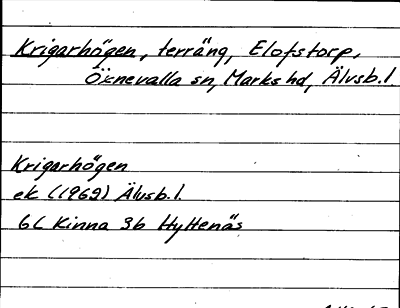 Krigarhögen, terräng, Elofstorp,
Öxnevalla sn, Marks hd, Älvsb.l.
Krigarhögen
ek (1969) Älvsb.l.
6C Kinna 3b Hyltenäs